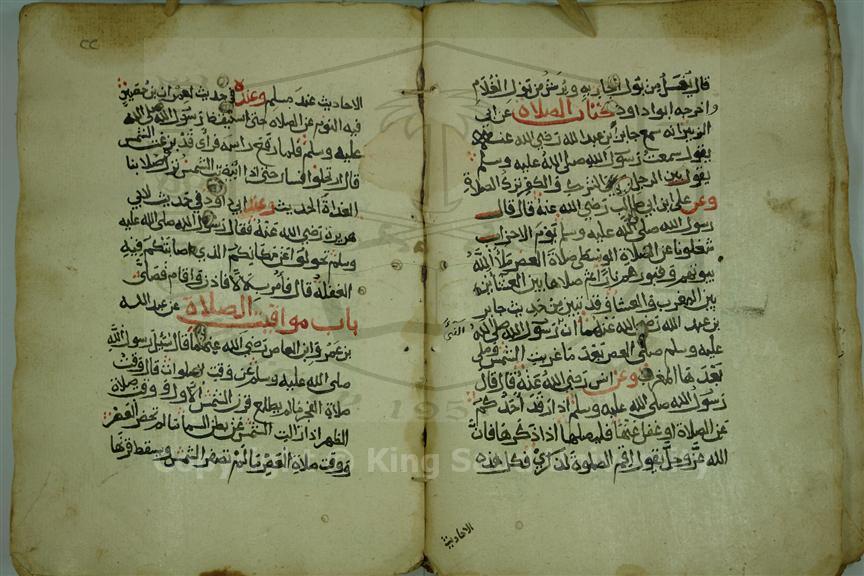 قال يغسل من بول الجارية ويرش من بول الغلام
واخرجه ابو داود كتاب الصلاة عن ابي
الزبير انه سمع جابر بن عبد الله رضي الله عنهما
يقول سمعت رسول الله صلى الله عليه وسلم
يقول بين الرجل وبين الشرك والكفر ترك الصلاة
وعن علي بن ابي طالب رضي الله عنه قال قال
رسول الله صلى الله عليه وسلم يوم الاحزاب
شغلونا عن الصلاة الوسطى صلاة العصر ملأ الله
بيوتهم وقبورهم نارا ثم صلاها بين العشائين
بين المغرب والعشا وقد تبين من حديث جابر
بن عبد الله رضي الله عنهما ان رسول الله صلى الله
عليه وسلم صلى العصر بعد ما غربت الشمس وصلى
بعدها المغرب وعن انس رضي الله عنه قال قال
رسول الله صلى الله عليه وسلم اذا رقد احدكم
عن الصلاة او غفل عنها فليصلها اذا ذكرها فان
الله عز وجل يقول اقم الصلوة لذكري فكل هذه
الاحاديث
الاحاديث عند مسلم وعنده في حديث لعمران بن حصين
فيه النوم عن الصلاة حتى استيقظ رسول الله صلى الله
عليه وسلم فلما رفع راسه فرأى قد بزغت الشمس
قال ارتحلوا فسار حتى اذا ابيضت الشمس نزل فصلى بنا
الغداة الحديث وعند ابي داود في حديث لابي
هريرة رضي الله عنه فقال رسول الله صلى الله عليه
وسلم تحولوا عن مكانكم الذي اصابتكم فيه
الغفلة قال فأمر بلالا فاذن واقام فصلى
باب مواقيت الصلاة عن عبد الله
بن عمرو بن العاص رضي الله عنهما قال سئل رسول الله
صلى الله عليه وسلم عن وقت الصلوات قال وقت
صلاة الفجر ما لم يطلع قرن الشمس الأول ووقت صلاة
الظهر اذا زالت الشمس عن بطن السما ما لم تحضر العصر
ووقت صلاة العصر ما لم تصفر الشمس ويسقط قرنها
Copyright © King Saud University
195